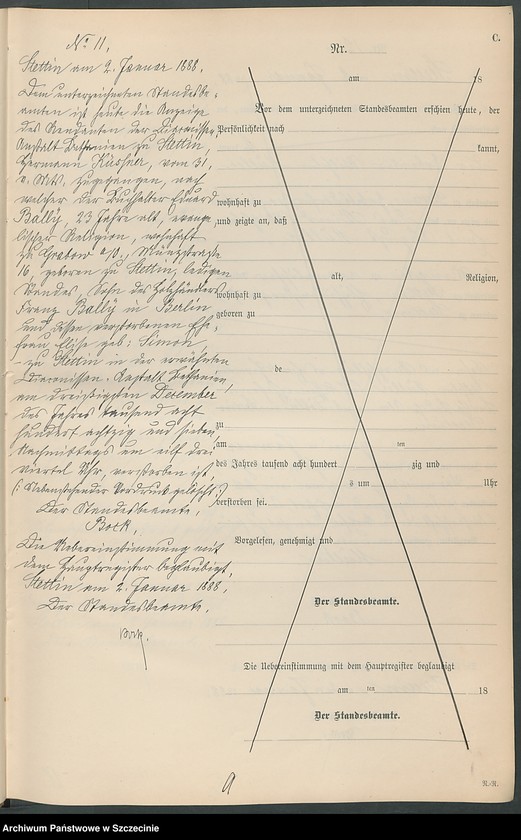 C.
No. 11.
Stettin am 2. Januar 1888.
Dem unterzeichneten Standesbe-
amten ist heute die Anzeige
des Rendanten der Diaconissen-
Anstalt Bethanien zu Stettin,
Hermann, vom 31.
v. Mts. zugegangen, nach
welcher der Buchhalter Eduard
Bally, 23 Jahre alt, evange-
lischer Religion, wohnhaft
zu Grabow a/O., Münzstraße
16, geboren zu Stettin, ledigen
Standes, Sohn des Holzhändlers
Franz Bally in Berlin
und dessen verstorbenen Ehe-
frau Elise geb: Simon
zu Stettin in der erwähnten
Diaconissen-Anstalt Bethanien,
am dreißigsten December
des Jahres tausend acht
hundert achtzig und sieben,
Nachmittags um elf drei
viertel Uhr, verstorben ist.
(: Nebenstehender Vordruck gelöscht :)
Der Standesbeamte.
Bock.
Die Uebereinstimmung mit
dem Hauptregister beglaubigt.
Stettin am 2. Januar 1888.
Der Standesbeamte.
Bock.
Nr.
am 18
Vor dem unterzeichneten Standesbeamten erschien heute, der
Persönlichkeit nach
kannt,
wohnhaft zu
und zeigte an, daß
alt, Religion,
wohnhaft zu
geboren zu
de
zu
am ten
des Jahres tausend acht hundert zig und
s um Uhr
verstorben sei.
Vorgelesen, genehmigt und
Der Standesbeamte.
Die Uebereinstimmung mit dem Hauptregister beglaubigt
am ten 18
Der Standesbeamte.
Archiwum Państwowe w Szczecinie